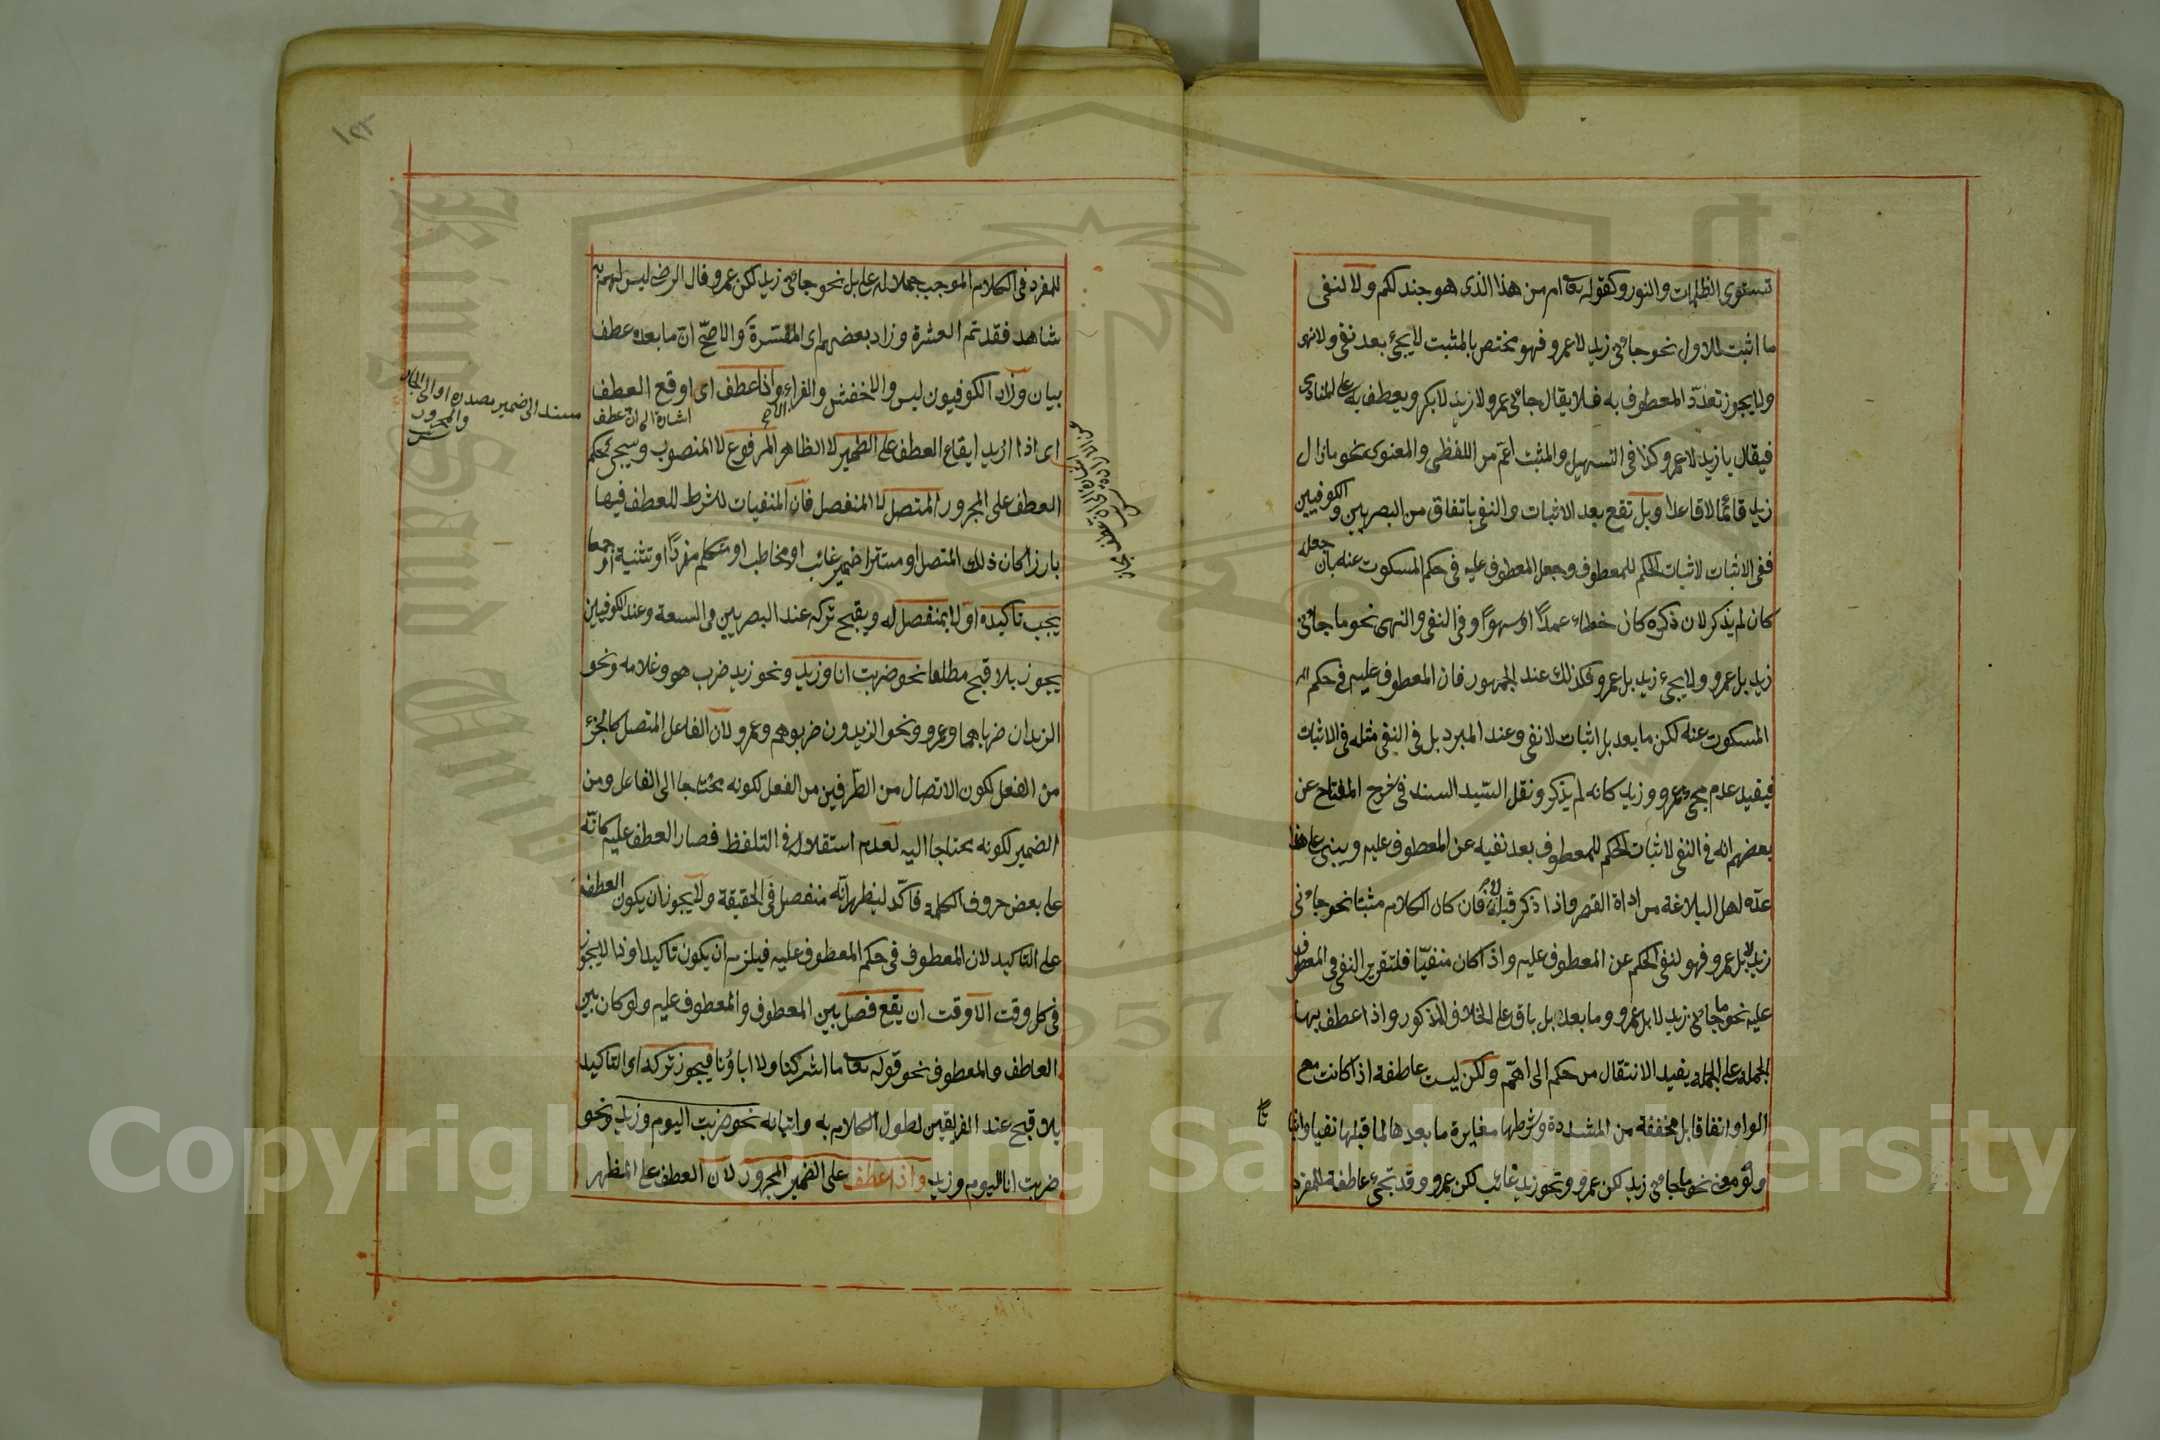 تستوى الظلمات والنور وكقوله تعا ام من هذا الذى هو جند لكم ولا لنفى
ما اثبت للاول نحو جاءنى زيد لا عمرو فهو مختص بالمثبت لا يجئ بعد نفى ولا نهى
ولا يجوز تعدد المعطوف به فلا يقال جاءنى عمرو لا زيد لا بكر ويعطف به على المنادى
فيقال يا زيد لا عمرو كذا فى التسهيل والمثبت اعم من اللفظى والمعنوى نحو ما زال
زيد قائما لا قاعدا وبل تقع بعد الاثبات والنفى باتفاق من البصريين والكوفيين
ففى الاثبات لاثبات الحكم للمعطوف وجعل المعطوف عليه فى حكم المسكوت عنه بان جعله
كان لم يذكر لان ذكره كان خطاء عمدًا او سهوًا وفى النفى والنهى نحو ما جاءنى
زيد بل عمرو ولا يجئ زيد بل عمرو فكذلك عند الجمهور فان المعطوف عليه فى حكم
المسكوت عنه لكن ما بعد بل اثبات لا نفى وعند المبرد بل فى النفى مثله فى الاثبات
فيفيد عدم مجئ عمرو وزيد كانه لم يذكر ونقل السيد السند فى شرح المفتاح عن
بعضهم انه فى النفى لاثبات الحكم للمعطوف بعد نفيه عن المعطوف عليه ويبنى على هذا
عده اهل البلاغة من اداة القصر واذا ذكر قبله لا فان كان الكلام مثبتا نحو جاءنى
زيد لا بل عمرو فهو لنفى الحكم عن المعطوف عليه واذا كان منفيًا فلتقرير النفى فى المعطوف
عليه نحو ما جاءنى زيد لا بل عمرو وما بعد بل باق على الخلاف المذكور واذا عطف بها
الجملة على الجملة يفيد الانتقال من حكم الى اهم ولكن ليست عاطفة اذا كانت مع
الواو اتفاقا بل مخففة من المشددة وشرطها مغايرة ما بعدها لما قبلها نفيا واثباتا
ولو معنى نحو ما جاءنى زيد لكن عمرو ونحو زيد غائب لكن عمرو وقد تجئ عاطفة للمفرد
للمفرد فى الكلام الموجب حملا له على بل نحو جاءنى زيد لكن عمرو قال الرضى ليس لهم به
شاهد فقد تم العشرة وزاد بعضهم اى المفسرة والاصح ان ما بعده عطف
بيان وزاد الكوفيون ليس والاخفش والفراء واذا عطف اى اوقع العطف
اشارة الى ان عطف
مسند الى ضمير مصدره او الى الجار
والمجرور
اى اذا اريد ايقاع العطف على الضمير لا الظاهر المرفوع لا المنصوب وسيجئ حكم
العطف على المجرور المتصل لا المنفصل فان المنفيات لا شرط للعطف فيها
بارزا كان ذلك المتصل او مستترا ضمير غائب او مخاطب او متكلم مفردًا او تثنية او جمعا
يجب تاكيده اولا بمنفصل له ويقبح تركه عند البصريين فى السعة وعند الكوفيين
يجوز بلا قبح مطلقا نحو ضربت انا وزيد ونحو زيد ضرب هو وغلامه ونحو
الزيدان ضربا هما وعمرو ونحو الزيدون ضربوهم وعمرو لان الفاعل المتصل كالجزء
من الفعل لكون الاتصال من الطرفين من الفعل لكونه محتاجا الى الفاعل ومن
الضمير لكونه محتاجا اليه لعدم استقلاله فى التلفظ فصار العطف عليه كانه
على بعض حروف الكلمة فاكد ليظهر انه منفصل فى الحقيقة ولا يجوز ان يكون العطف
على التاكيد لان المعطوف فى حكم المعطوف عليه فيلزم ان يكون تاكيدا وذا لا يجوز
فى كل وقت الا وقت ان يقع فصل بين المعطوف والمعطوف عليه ولو كان بين
العاطف والمعطوف نحو قوله تعا ما اشركنا ولا اباؤنا فيجوز تركه اى التاكيد
بلا قبح عند الفريقين لطول الكلام به واتيانه نحو ضربت اليوم وزيد ونحو
ضربت انا اليوم وزيد واذا عطف على الضمير المجرور لان العطف على المظهر
Copyright (c) King Saud University
King Saud University
1957